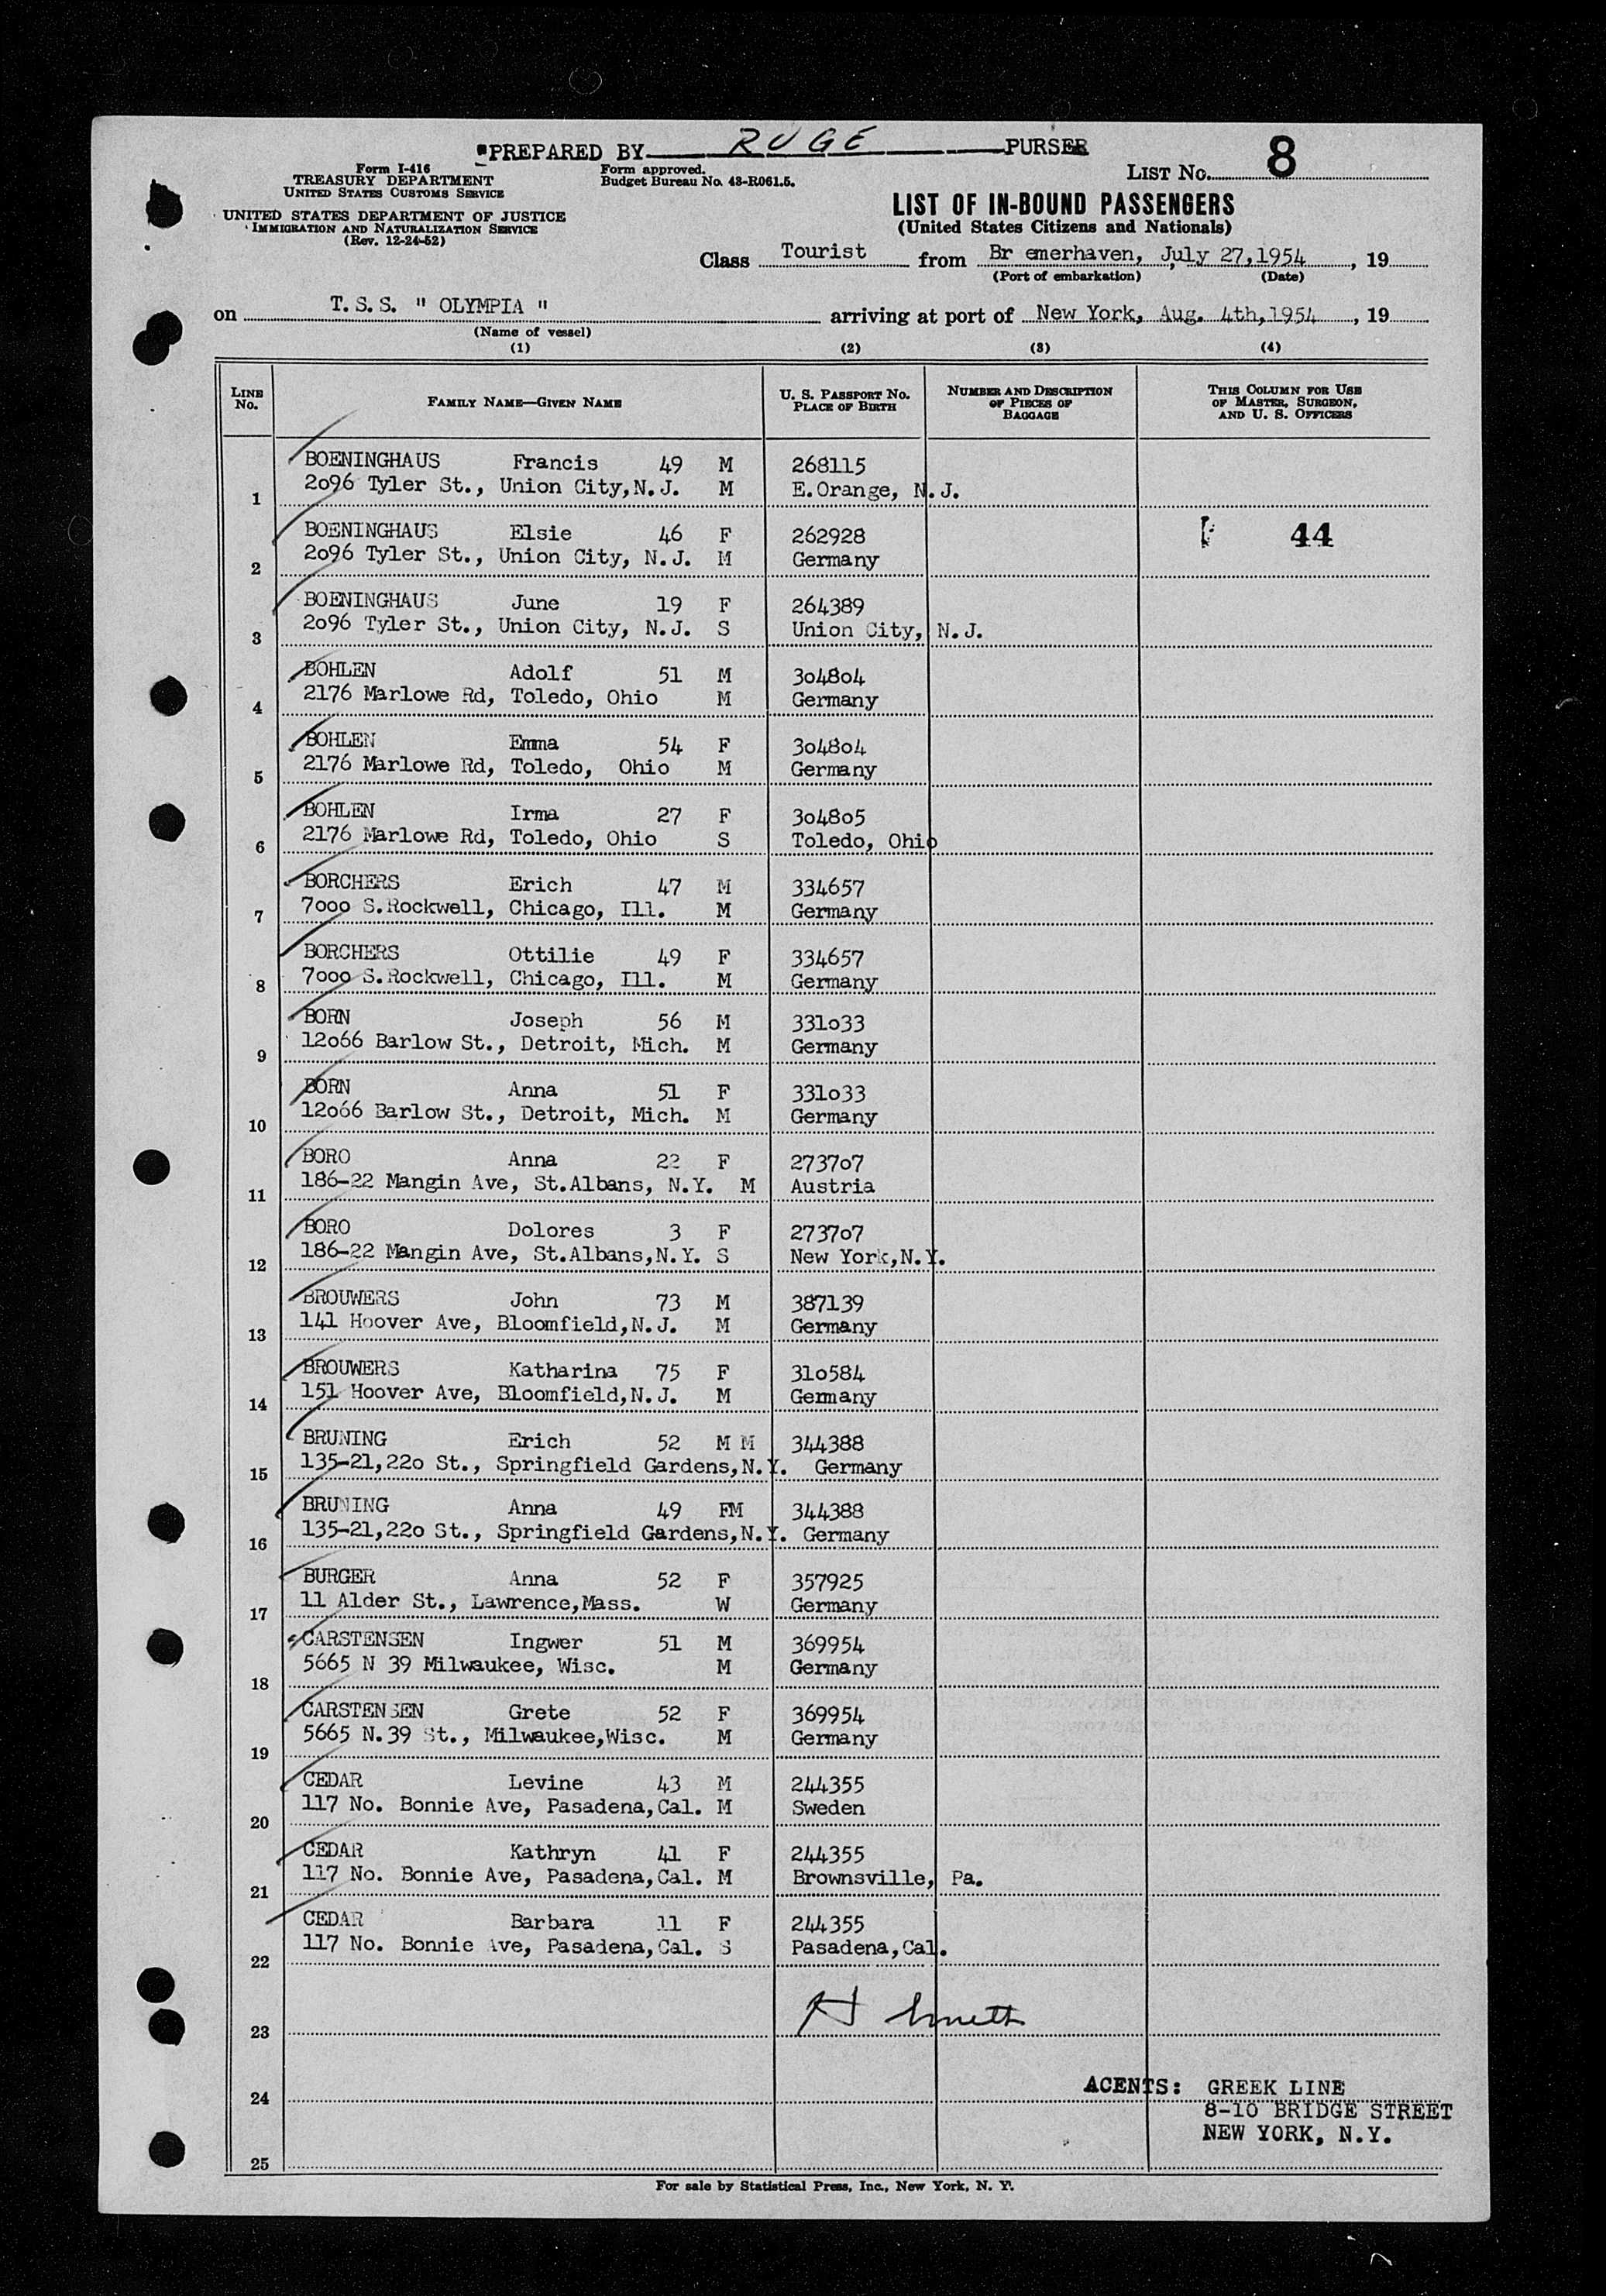 PREPARED BY RUGE PURSER
Form I-416
TREASURY DEPARTMENT
UNITED STATES CUSTOMS SERVICE
Form approved.
Budget Bureau No. 43-R061.5.
LIST No. 8
UNITED STATES DEPARTMENT OF JUSTICE
IMMIGRATION AND NATURALIZATION SERVICE
(Rev. 12-24-52)
LIST OF IN-BOUND PASSENGERS
(United States Citizens and Nationals)
Class Tourist from Br emerhaven, July 27,1954, 19
(Port of embarkation) (Date)
on T.S.S. " OLYMPIA " arriving at port of New York, Aug. 4th,1954, 19
(Name of vessel)
(1) (2) (3) (4)
LINE No. FAMILY NAME—GIVEN NAME U. S. PASSPORT No. PLACE OF BIRTH NUMBER AND DESCRIPTION OF PIECES OF BAGGAGE THIS COLUMN FOR USE OF MASTER, SURGEON, AND U. S. OFFICERS
BOENINGHAUS Francis 49 M 268115
1 2o96 Tyler St., Union City,N.J. M E.Orange, N.J.
BOENINGHAUS Elsie 46 F 262928 44
2 2o96 Tyler St., Union City, N.J. M Germany
BOENINGHAUS June 19 F 264389
3 2o96 Tyler St., Union City, N.J. S Union City, N.J.
BOHLEN Adolf 51 M 3o48o4
4 2176 Marlowe Rd, Toledo, Ohio M Germany
BOHLEN Emma 54 F 3o48o4
5 2176 Marlowe Rd, Toledo, Ohio M Germany
BOHLEN Irma 27 F 3o48o5
6 2176 Marlowe Rd, Toledo, Ohio S Toledo, Ohio
BORCHERS Erich 47 M 334657
7 7ooo S.Rockwell, Chicago, Ill. M Germany
BORCHERS Ottilie 49 F 334657
8 7ooo S.Rockwell, Chicago, Ill. M Germany
BORN Joseph 56 M 331o33
9 12o66 Barlow St., Detroit, Mich. M Germany
BORN Anna 51 F 331o33
10 12o66 Barlow St., Detroit, Mich. M Germany
BORO Anna 22 F 2737o7
11 186-22 Mangin Ave, St.Albans, N.Y. M Austria
BORO Dolores 3 F 2737o7
12 186-22 Mangin Ave, St.Albans,N.Y. S New York,N.Y.
BROUWERS John 73 M 387139
13 141 Hoover Ave, Bloomfield,N.J. M Germany
BROUWERS Katharina 75 F 31o584
14 151 Hoover Ave, Bloomfield,N.J. M Germany
BRUNING Erich 52 M M 344388
15 135-21,22o St., Springfield Gardens,N.Y. Germany
BRUNING Anna 49 FM 344388
16 135-21,22o St., Springfield Gardens,N.Y. Germany
BURGER Anna 52 F 357925
17 11 Alder St., Lawrence,Mass. W Germany
CARSTENSEN Ingwer 51 M 369954
18 5665 N 39 Milwaukee, Wisc. M Germany
CARSTENSEN Grete 52 F 369954
19 5665 N.39 St., Milwaukee,Wisc. M Germany
CEDAR Levine 43 M 244355
20 117 No. Bonnie Ave, Pasadena,Cal. M Sweden
CEDAR Kathryn 41 F 244355
21 117 No. Bonnie Ave, Pasadena,Cal. M Brownsville, Pa.
CEDAR Barbara 11 F 244355
22 117 No. Bonnie Ave, Pasadena,Cal. S Pasadena,Cal.
23
AGENTS: GREEK LINE
24 8-10 BRIDGE STREET
NEW YORK, N.Y.
25
For sale by Statistical Press, Inc., New York, N. Y.